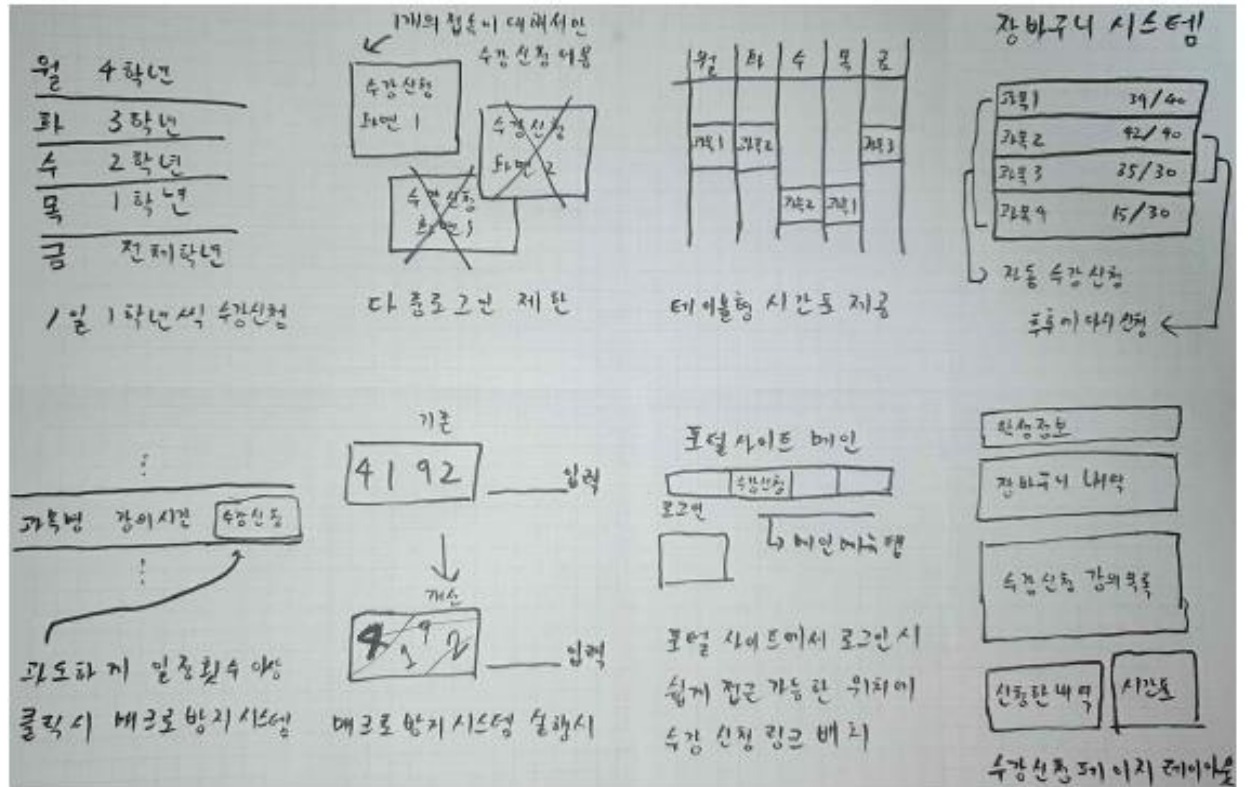 월 4학년
화 3학년
수 2학년
목 1학년
금 전체학년
1일 1학년씩 수강신청
1개의 접속에 대해서만
수강신청 허용
수강신청
화면 1
수강신청
화면 2
수강신청
화면 3
다중로그인 제한
월 화 수 목 금
과목1 과목2 과목3
과목2 과목1
테이블형 시간표 제공
장바구니 시스템
과목1 39/40
과목2 42/40
과목3 35/30
과목4 15/30
자동 수강신청
추후에 다시 신청
과목명 강의시간 수강신청
과도하게 일정횟수 이상
클릭시 매크로방지시스템
기존
4192
입력
개선
4192
입력
매크로방지시스템 실행시
포털사이트 메인
수강신청
로그인
메인메뉴탭
포털 사이트에서 로그인 시
쉽게 접근 가능한 위치에
수강신청 링크 배치
학생정보
장바구니 내역
수강신청 강의목록
신청한내역
시간표
수강신청페이지 레이아웃